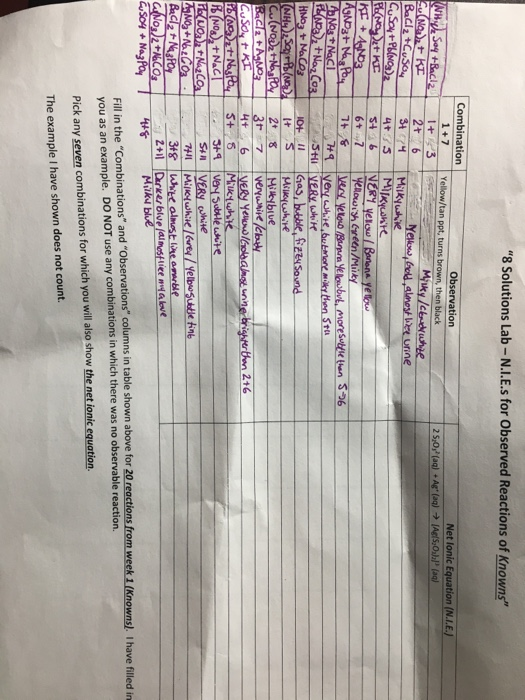 "8 Solutions Lab – N.I.E.s for Observed Reactions of Knowns"
Combination Observation Net Ionic Equation (N.I.E.)
1 + 7 Yellow/tan ppt, turns brown, then black
(NH4)2 SO4 + BaCl2 1 + 3 Milky/cloudy white
Cu(NO3)2 + KI 2 + 6 Yellow, Gold, almost like urine
BaCl2 + CuSO4 3 + 4 Milky white
CuSO4 + Pb(NO3)2 4 + 5 Milky white
Pb(NO3)2 + KI 5 + 6 VERY Yellow / Banana Yellow
KI + AgNO3 6 + 7 Yellowish green/milky
AgNO3 + Na3PO4 7 + 8 Very Yellow/Banana Yellow but more subtle than 5→6
AgNO3 + NaCl 7 + 9 Very white, but more milky than 5+11
Pb(NO3)2 + Na2CO3 5 + 11 VERY white
HNO3 + Na2CO3 10 + 11 Gas, bubble, fizzy sound
(NH4)2 SO4 + Pb(NO3)2 1 + 5 Milky white
Cu(NO3)2 + Na3PO4 2 + 8 Milky blue
BaCl2 + AgNO3 3 + 7 Very white/cloudy
CuSO4 + KI 4 + 6 VERY Yellow/Gold almost urine, brighter than 2+6
Pb(NO3)2 + Na3PO4 5 + 8 Milky white
Pb(NO3)2 + NaCl 5 + 9 Very subtle white
Pb(NO3)2 + Na2CO3 5 + 11 VERY white
AgNO3 + Na2CO3 7 + 11 Milky white/Grey/Yellow subtle tint
BaCl2 + Na3PO4 3 + 8 White almost like a marble
Cu(NO3)2 + Na2CO3 2 + 11 Darker blue/almost like my above
CuSO4 + Na3PO4 4 + 8 Milky blue
Fill in the "Combinations" and "Observations" columns in table shown above for 20 reactions from week 1 (Knowns). I have filled in
you as an example. DO NOT use any combinations in which there was no observable reaction.
Pick any seven combinations for which you will also show the net ionic equation.
The example I have shown does not count.